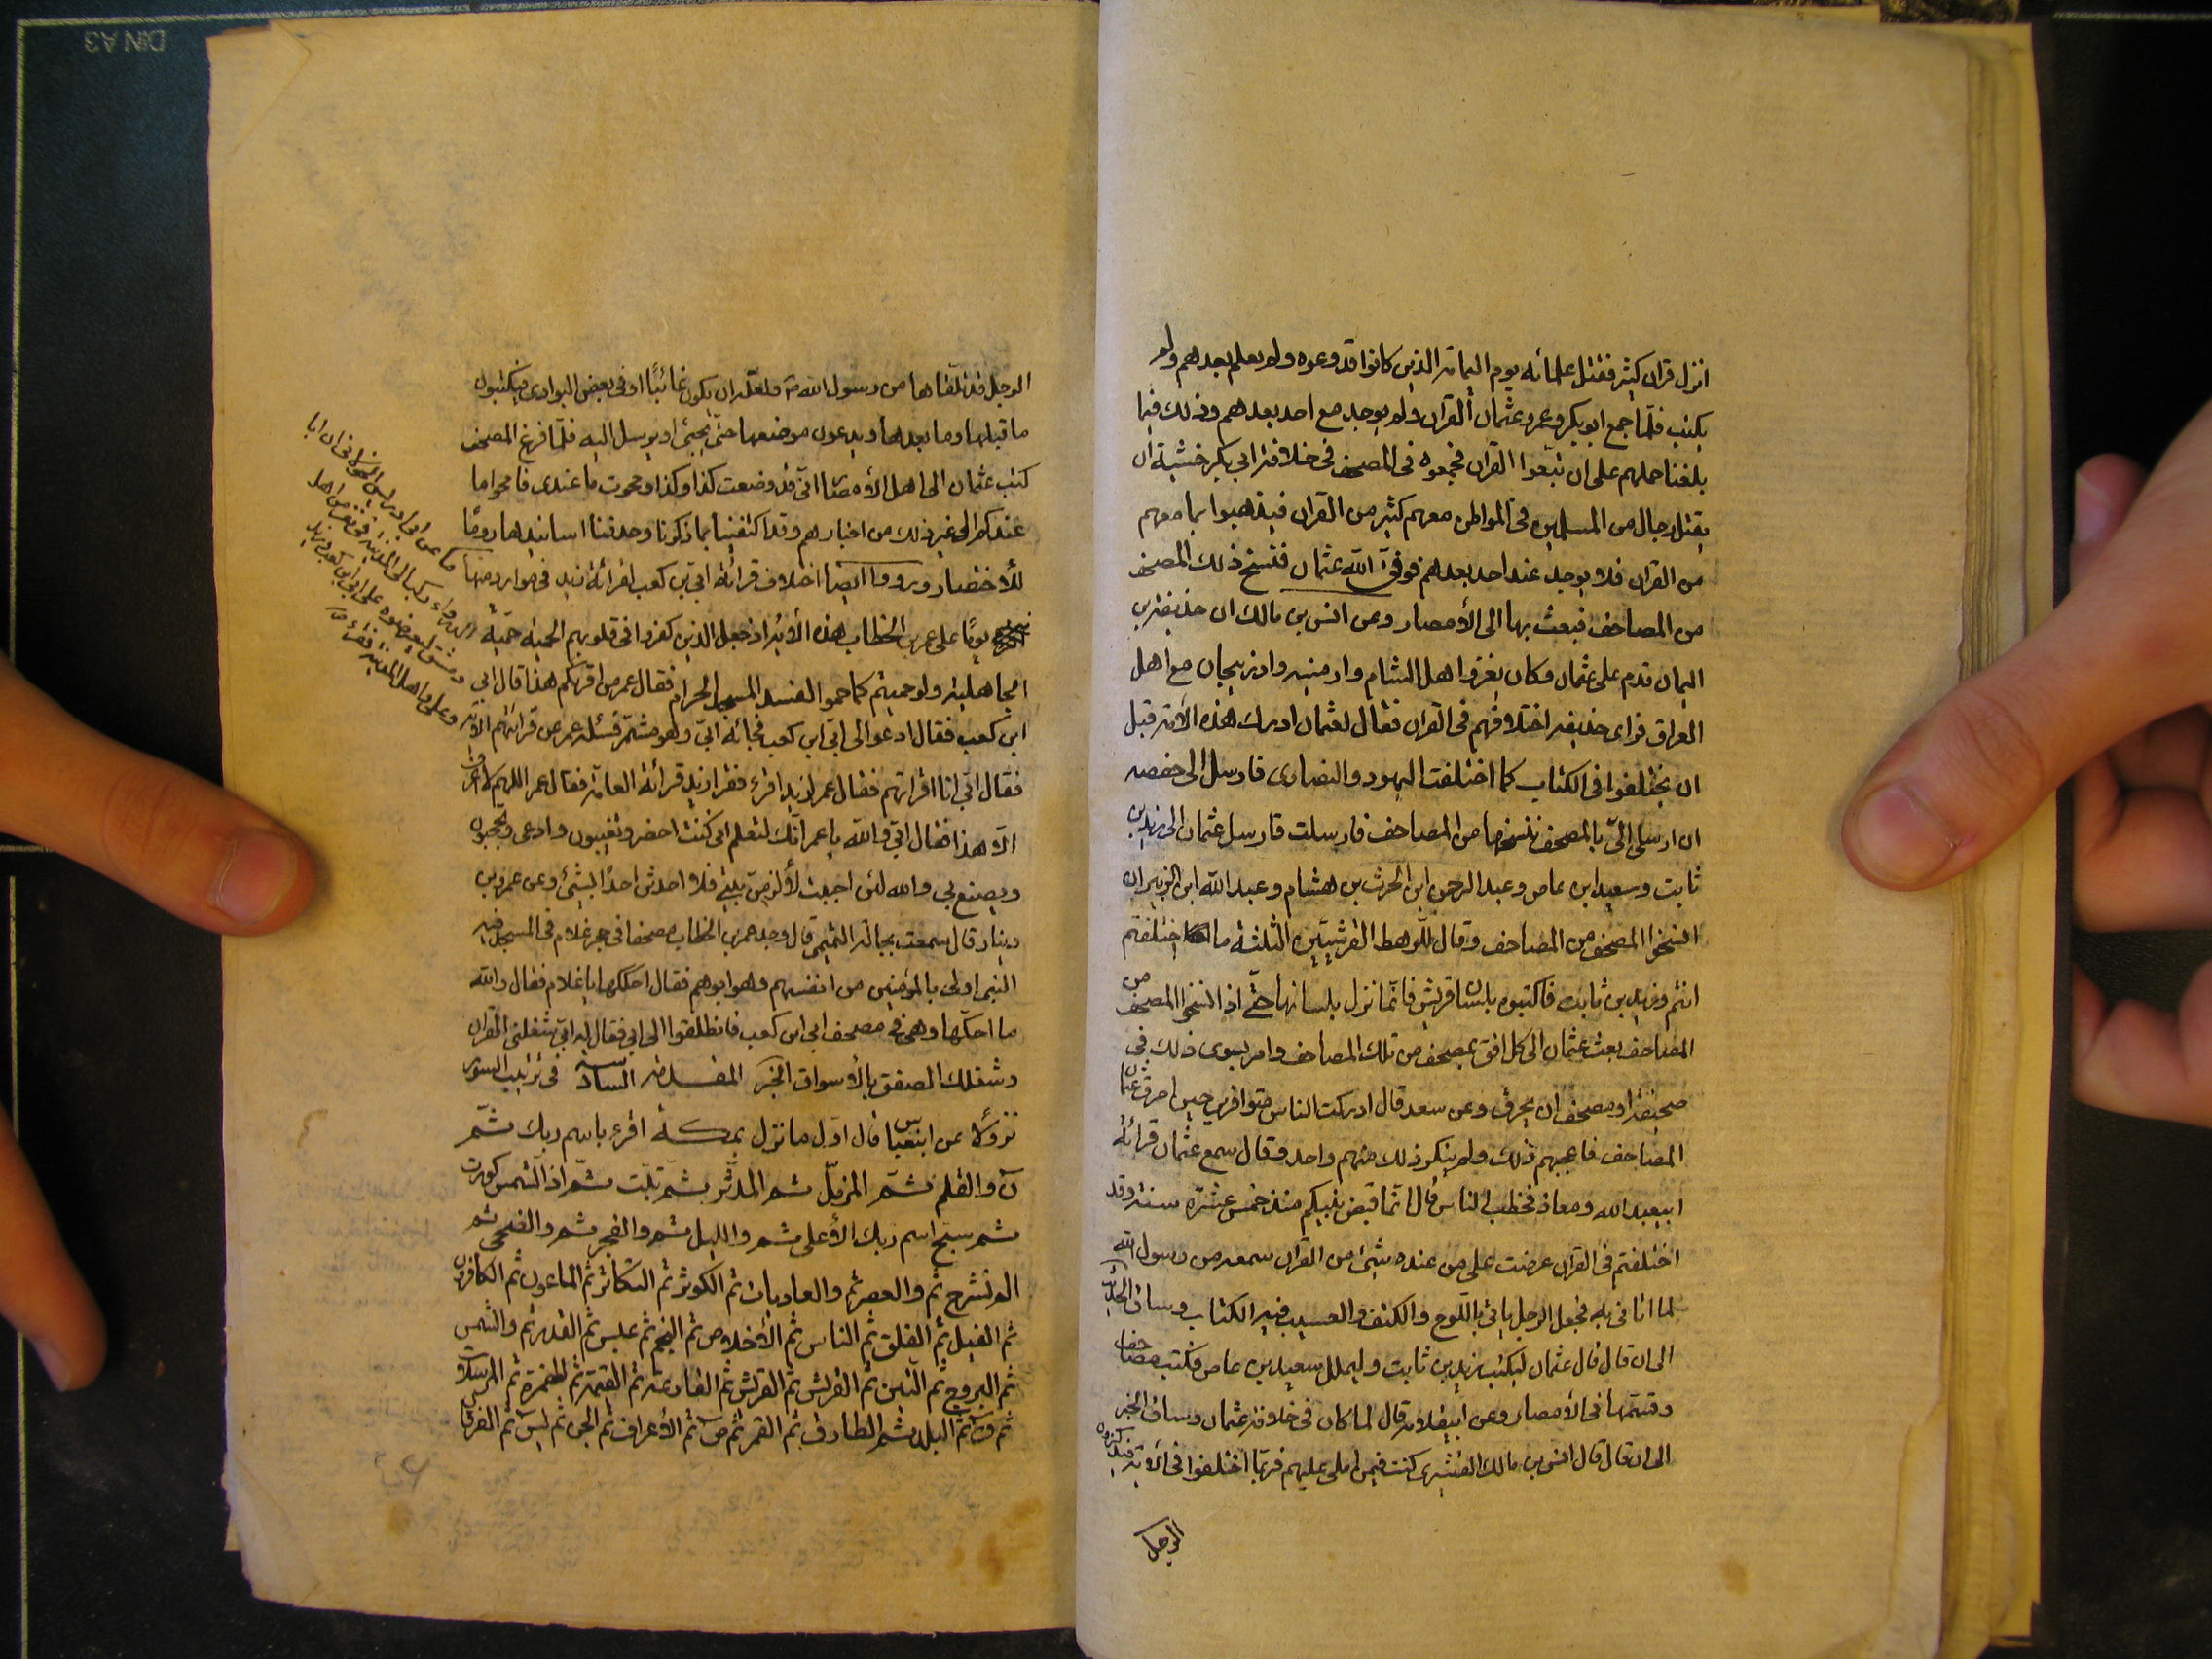 انزل قران كثير فقتل علمائه يوم اليمامة الذين كانوا قد وعوه ولم يعلم بعدهم ولم
يكتب فلمّا جمع ابو بكر وعمر وعثمان القران ولم يوجد مع احد بعدهم وذلك فيما
بلغنا حملهم على ان تتبّعوا القران فجمعوه في المصحف في خلافة ابي بكر خشية ان
يقتل رجال من المسلمين في المواطن معهم كثير من القران فيذهبوا بما معهم
من القران فلا يوجد عند احد بعدهم فوفّق الله عثمان فنسخ ذلك المصحف
من المصاحف فبعث بها الى الأمصار وعن انس بن مالك ان حذيفة بن
اليمان قدم على عثمان وكان يغزوا اهل الشام وارمنيه واذربيجان مع اهل
العراق فراى حذيفه اختلافهم في القران فقال لعثمان ادرك هذه الأمة قبل
ان يختلفوا في الكتاب كما اختلفت اليهود والنصارى فارسل الى حفصه
ان ارسلى اليّ بالمصحف ننسخها من المصاحف فارسلت فارسل عثمان الى زيد بن
ثابت وسعيد ابن عاص وعبد الرحمن ابن الحرث بن هشام وعبد الله ابن الزبير ان
انسخوا المصحف من المصاحف وقال للرهط القرشيّين الثلثة ما اختلفتم
انتم وزيد بن ثابت فاكتبوه بلسان قريش فانّما نزل بلسانها حتّى اذا انسخوا المصحف من
المصاحف بعث عثمان الى كل افق بمصحف من تلك المصاحف وامر بسوى ذلك في
صحيفة او مصحف ان يحرق وعن سعد قال ادركت الناس متوافرين حين احرق عثمان
المصاحف فاعجبهم ذلك ولم ينكر ذلك منهم واحد وقال سمع عثمان قرائة
ابي عبد الله ومعاذ فخطب الناس قال انّما قبض نبيكم منذ خمس عشرة سنة وقد
اختلفتم في القران عزمت على من عنده شئ من القران سمعه من رسول الله
لما اتاني به فجعل الرجل ياتي باللّوح والكتف والعسيب فيه الكتاب وساق الحديث
الى ان قال قال عثمان ليكتب زيد بن ثابت وليملل سعيد بن عاص فكتب مصاحف
وقسمها في الأمصار وعن ابي قلابه قال لما كان في خلافة عثمان وساق الخبر
الى ان قال قال انس بن مالك القشيرى كنت فيمن املى عليهم فربّما اختلفوا في الاية فيذكرون
الرجل
الرجل قد تلقّاها من رسول الله ص ولعلّه ان يكون غائبًا او في بعض البوادى فيكتبون
ما قبلها وما بعدها ويدعون موضعها حتّى يجيئ او يرسل اليه فلمّا فرغ المصحف
كتب عثمان الى اهل الأمصار انّى قد وضعت كذا وكذا ومحوت ما عندى فامحوا ما
عندكم الى غير ذلك من اخبارهم وقد اكتفينا بما ذكرنا وحذفنا اسانيدها رومًا
للأختصار ورووا ايضا اختلاف قرائة ابي بن كعب لقرائة زيد في موارد منها
يومًا على عمر بن الخطاب هذه الأية اذ جعل الذين كفروا في قلوبهم الحمية حميّة
الجاهلية ولو حميتم كما حموا لفسد المسجد الحرام فقال عمر من اقرئكم هذا قال ابي
ابن كعب فقال ادعوا لى ابّي ابن كعب فجائه ابّي وهو مشمّر فسئله عمر من قرائتهم الأية
فقال ابّي انا اقراتهم فقال عمر لزيد اقرء فقرا زيد قرائة العامّة فقال عمر اللهم لا اعرف
الّا هذا فقال ابّي والله يا عمر انّك لتعلم انى كنت احضر ويغيبون وادعى ويحجبون
ويصنع بي والله لئن احببت لألزمنّ بيتي فلا احدث احدًا بشئ وعن عمرو بن
دينار قال سمعت بجالة التميمى قال وجد عمر بن الخطاب مصحفا في حجر غلام في المسجد فيه
النبى اولى بالمؤمنين من انفسهم وهو ابوهم فقال احككها يا غلام فقال والله
ما احكّها وهي في مصحف ابي ابن كعب فانطلقوا الى ابي فقال له ابّي شغلنى القران
وشغلك الصفق بالأسواق الخبر المقدمة السادسة في ترتيب السور
نزولًا عن ابن عباس قال اوّل ما نزل بمكة اقرء باسم ربك ثمّ
نٓ والقلم ثمّ المزمّل ثم المدّثر ثمّ تبّت ثمّ اذا الشمس كوّرت
ثم سبّح اسم ربك الأعلى ثم والليل ثم والفجر ثم والضحى ثم
الم نشرح ثم والعصر ثم والعاديات ثم الكوثر ثم التكاثر ثم الماعون ثم الكافرون
ثم الفيل ثم الفلق ثم الناس ثم الأخلاص ثم النجم ثم عبس ثم القدر ثم والشمس
ثم البروج ثم التين ثم القريش ثم القارعة ثم القيمة ثم الهمزة ثم المرسلات
ثم ق ثم البلد ثم الطارق ثم القمر ثم ص ثم الأعراف ثم الجن ثم يس ثم الفرقان
عن ابي ادريس الخولانى ان ابا
الدرداء ركب الى المدينة في نفر من اهل
دمشق